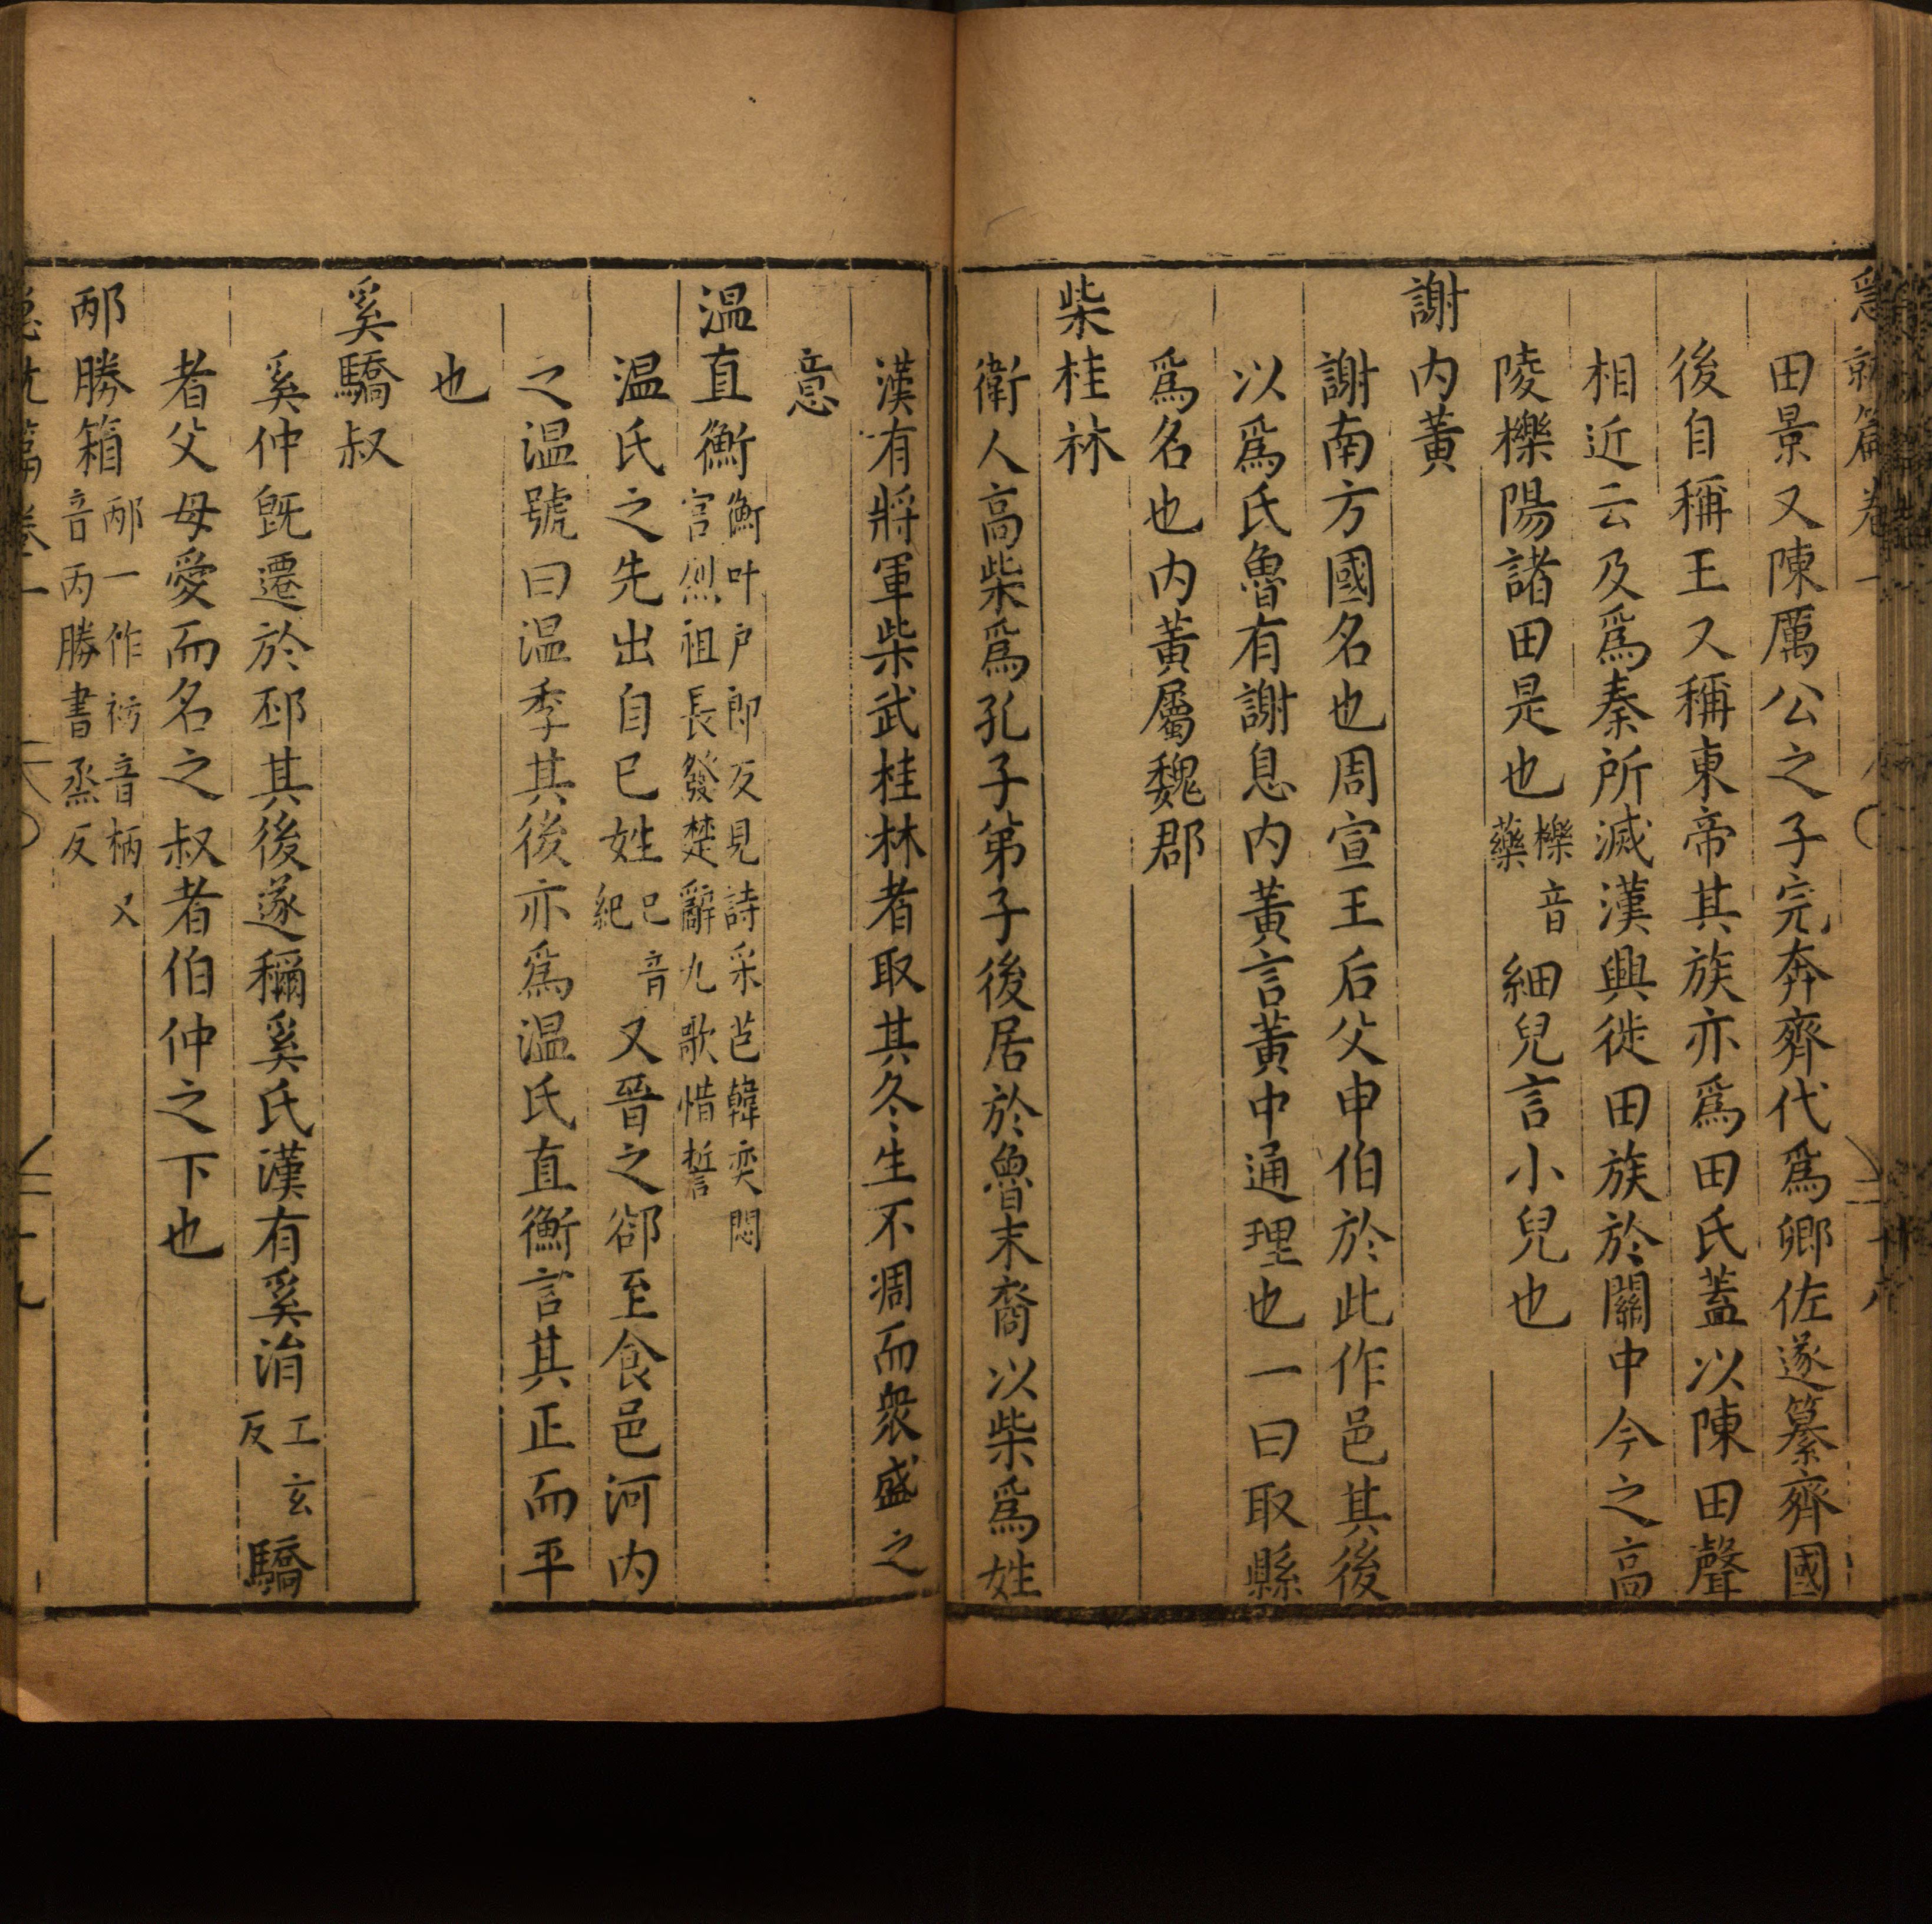 急就篇卷一
十八
田景又陳厲公之子完奔齊代爲卿佐遂纂齊國
後自稱王又稱東帝其族亦爲田氏蓋以陳田聲
相近云及爲秦所滅漢興徙田族於關中今之高
陵櫟陽諸田是也櫟音藥細兒言小兒也
謝内黃
謝南方國名也周宣王后父申伯於此作邑其後
以爲氏魯有謝息内黃言黃中通理也一曰取縣
爲名也内黃屬魏郡
柴桂林
衛人高柴爲孔子弟子後居於魯末裔以柴爲姓
漢有將軍柴武桂林者取其冬生不凋而衆盛之
意
温直衡衡叶户郎反見詩采芑韓奕閟宮烈祖長發楚辭九歌惜誓
温氏之先出自已姓已音紀又晉之郤至食邑河内
之温號曰温季其後亦爲温氏直衡言其正而平
也
奚驕叔
奚仲旣遷於邳其後遂稱奚氏漢有奚涓工玄反驕
者父母愛而名之叔者伯仲之下也
邴勝箱邴一作祊音柄又音丙勝書烝反
急就篇卷一
十九